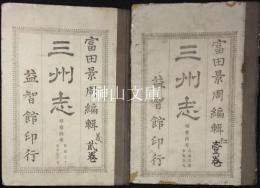 富田景周編輯
三州志
貳卷
益智館印行
富田景周編輯
三州志
壹卷
益智館印行
榊山文庫